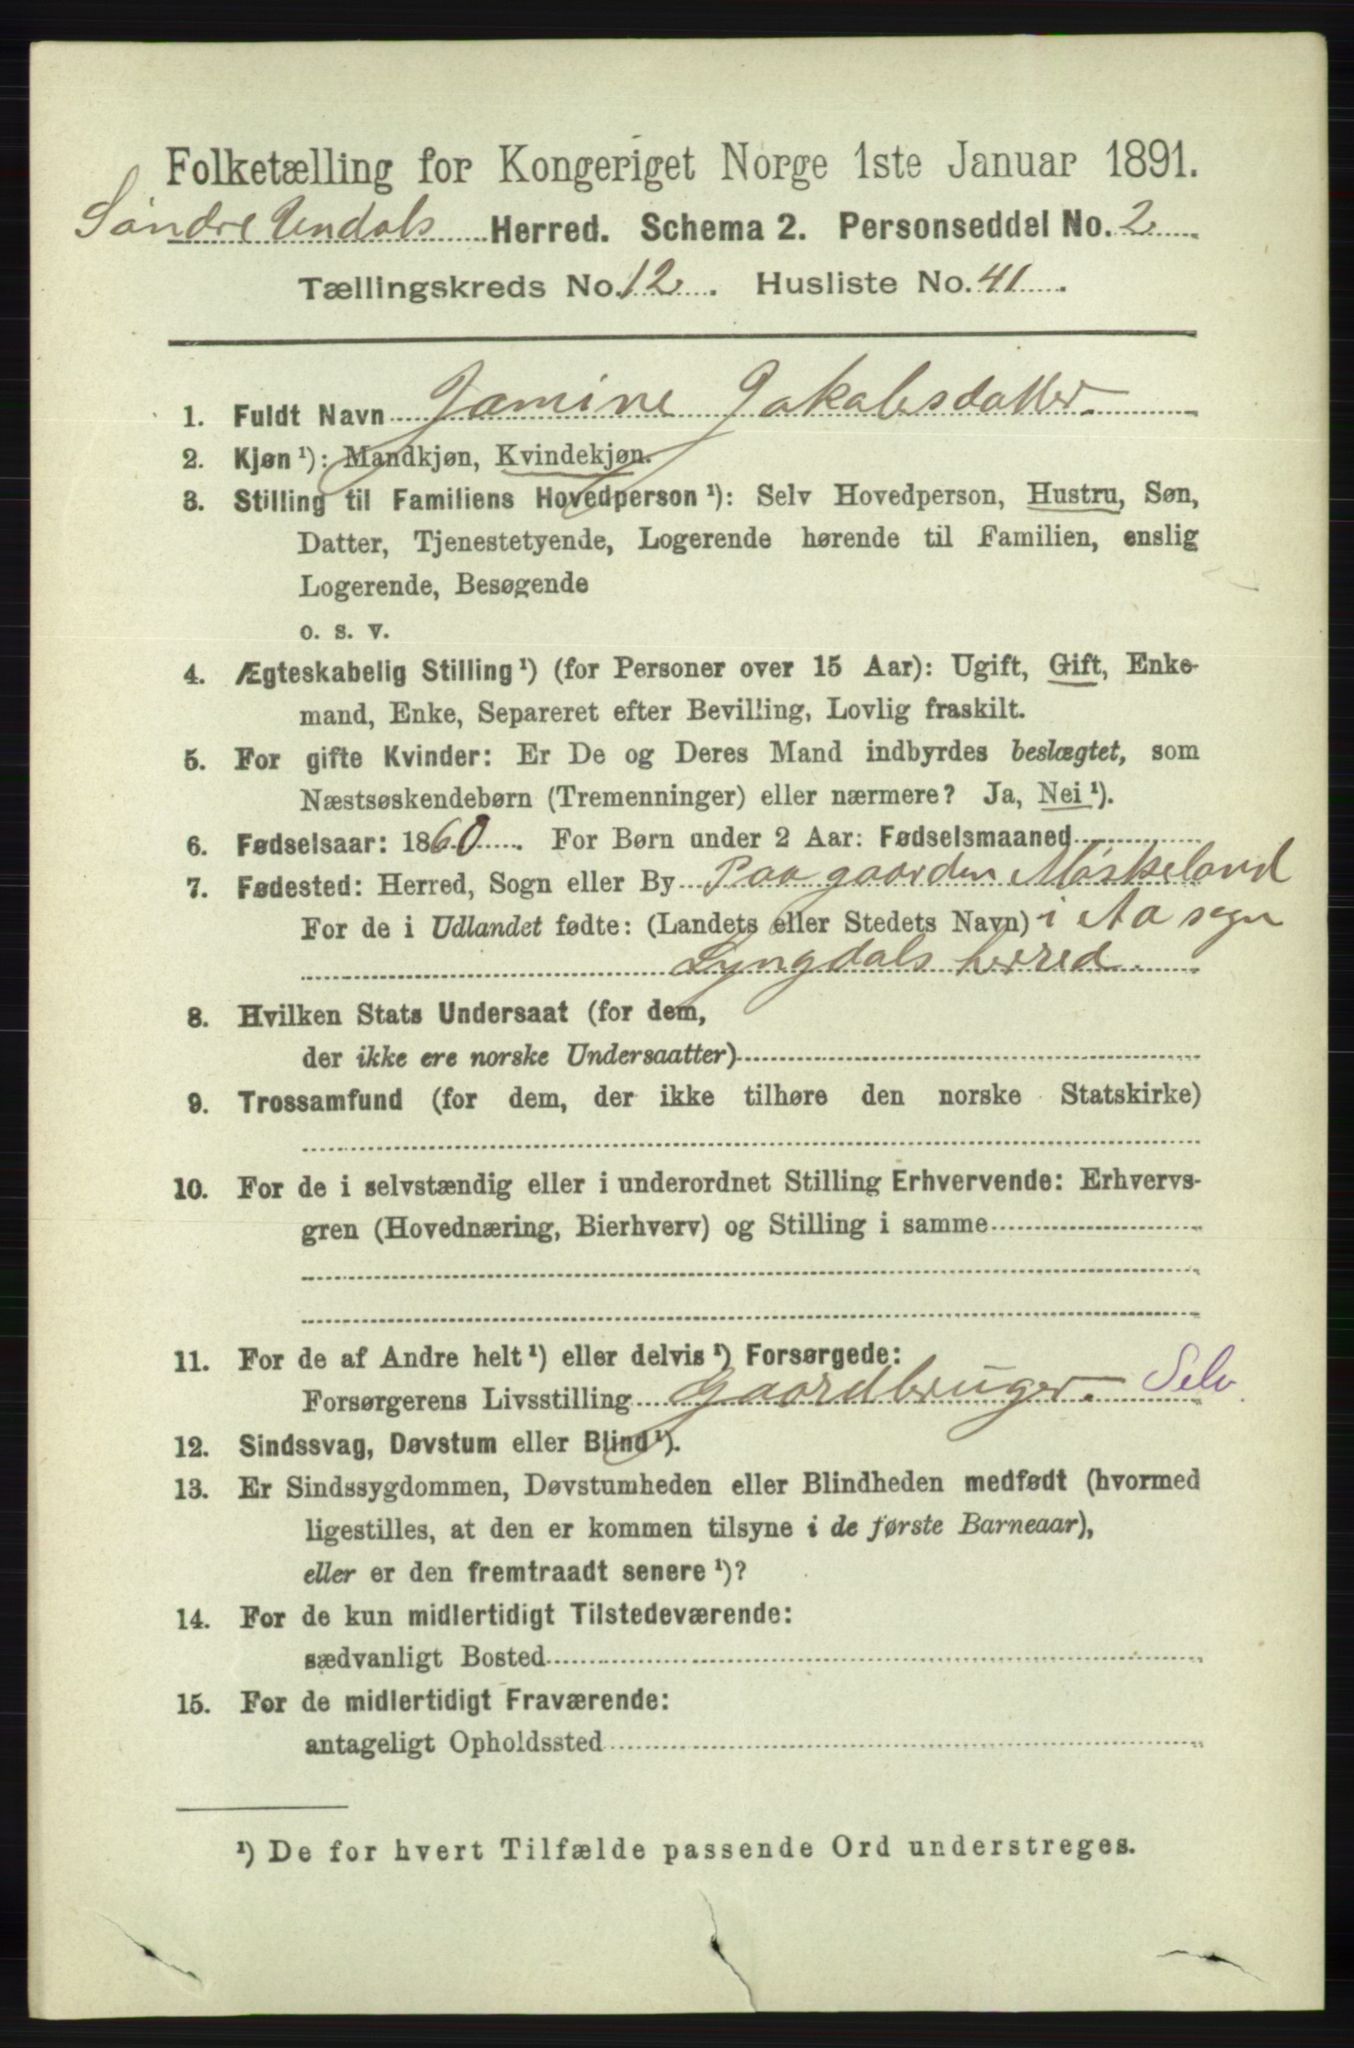 Folketælling for Kongeriget Norge 1ste Januar 1891.
Søndre Undals Herred. Schema 2. Personseddel No. 2
Tællingskreds No. 12. Husliste No. 41.
1. Fuldt Navn Jamine Jakabsdatter.
2. Kjøn ¹): Mandkjøn, Kvindekjøn.
3. Stilling til Familiens Hovedperson ¹): Selv Hovedperson, Hustru, Søn,
Datter, Tjenestetyende, Logerende hørende til Familien, enslig
Logerende, Besøgende
o. s. v.
4. Ægteskabelig Stilling ¹) (for Personer over 15 Aar): Ugift, Gift, Enke-
mand, Enke, Separeret efter Bevilling, Lovlig fraskilt.
5. For gifte Kvinder: Er De og Deres Mand indbyrdes beslægtet, som
Næstsøskendebørn (Tremenninger) eller nærmere? Ja, Nei ¹).
6. Fødselsaar: 1860. For Børn under 2 Aar: Fødselsmaaned
7. Fødested: Herred, Sogn eller By Paa gaarden Møskeland
For de i Udlandet fødte: (Landets eller Stedets Navn) i Aa sogn
Lyngdals herred.
8. Hvilken Stats Undersaat (for dem,
der ikke ere norske Undersaatter)
9. Trossamfund (for dem, der ikke tilhøre den norske Statskirke)
10. For de i selvstændig eller i underordnet Stilling Erhvervende: Erhvervs-
gren (Hovednæring, Bierhverv) og Stilling i samme
11. For de af Andre helt ¹) eller delvis ¹) Forsørgede:
Forsørgerens Livsstilling Gaardbruger. Selv
12. Sindssvag, Døvstum eller Blind ¹).
13. Er Sindssygdommen, Døvstumheden eller Blindheden medfødt (hvormed
ligestilles, at den er kommen tilsyne i de første Barneaar),
eller er den fremtraadt senere ¹)?
14. For de kun midlertidigt Tilstedeværende:
sædvanligt Bosted
15. For de midlertidigt Fraværende:
antageligt Opholdssted
¹) De for hvert Tilfælde passende Ord understreges.